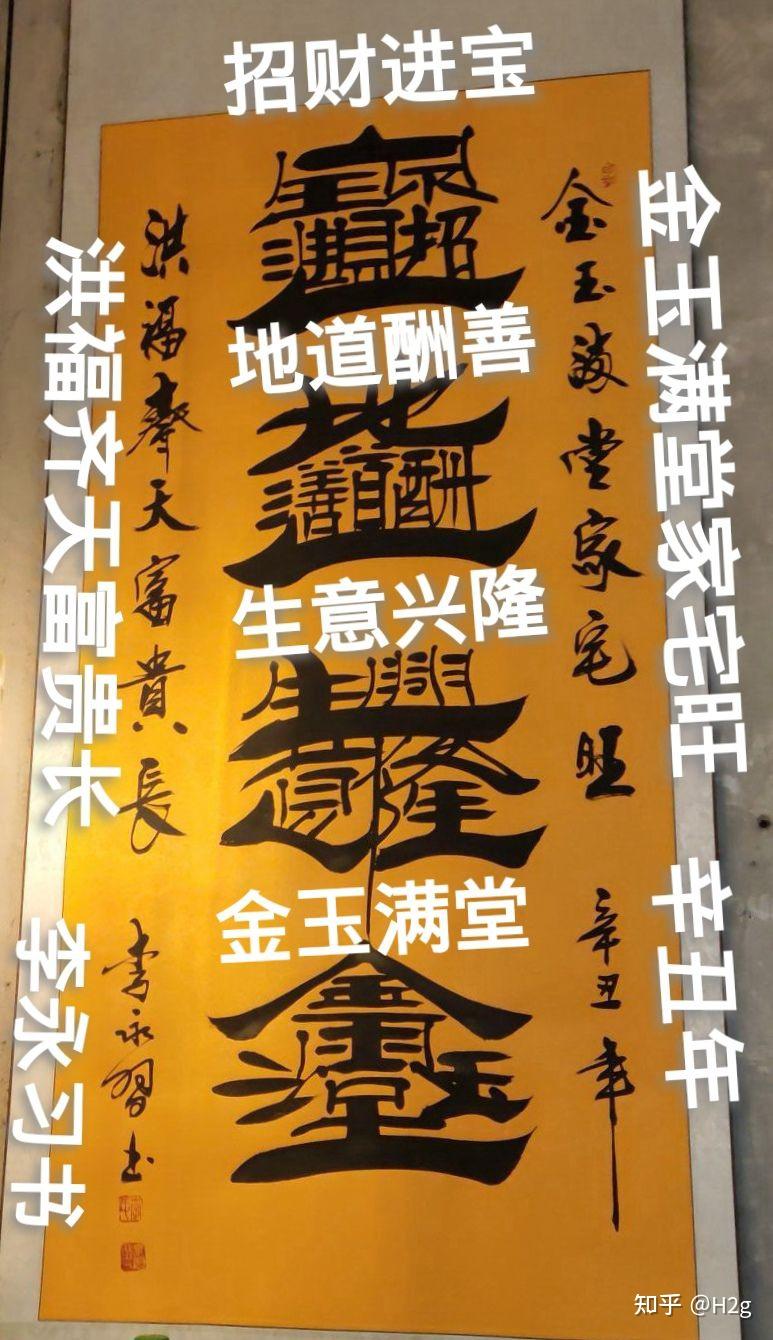 招财进宝
地道酬善
生意兴隆
金玉满堂
金玉满堂家宅旺
辛丑年
洪福齐天富贵长
李永习书
金玉滿堂家宅旺
辛丑年
洪福齊天富貴長
李永習书
知乎 @H2g